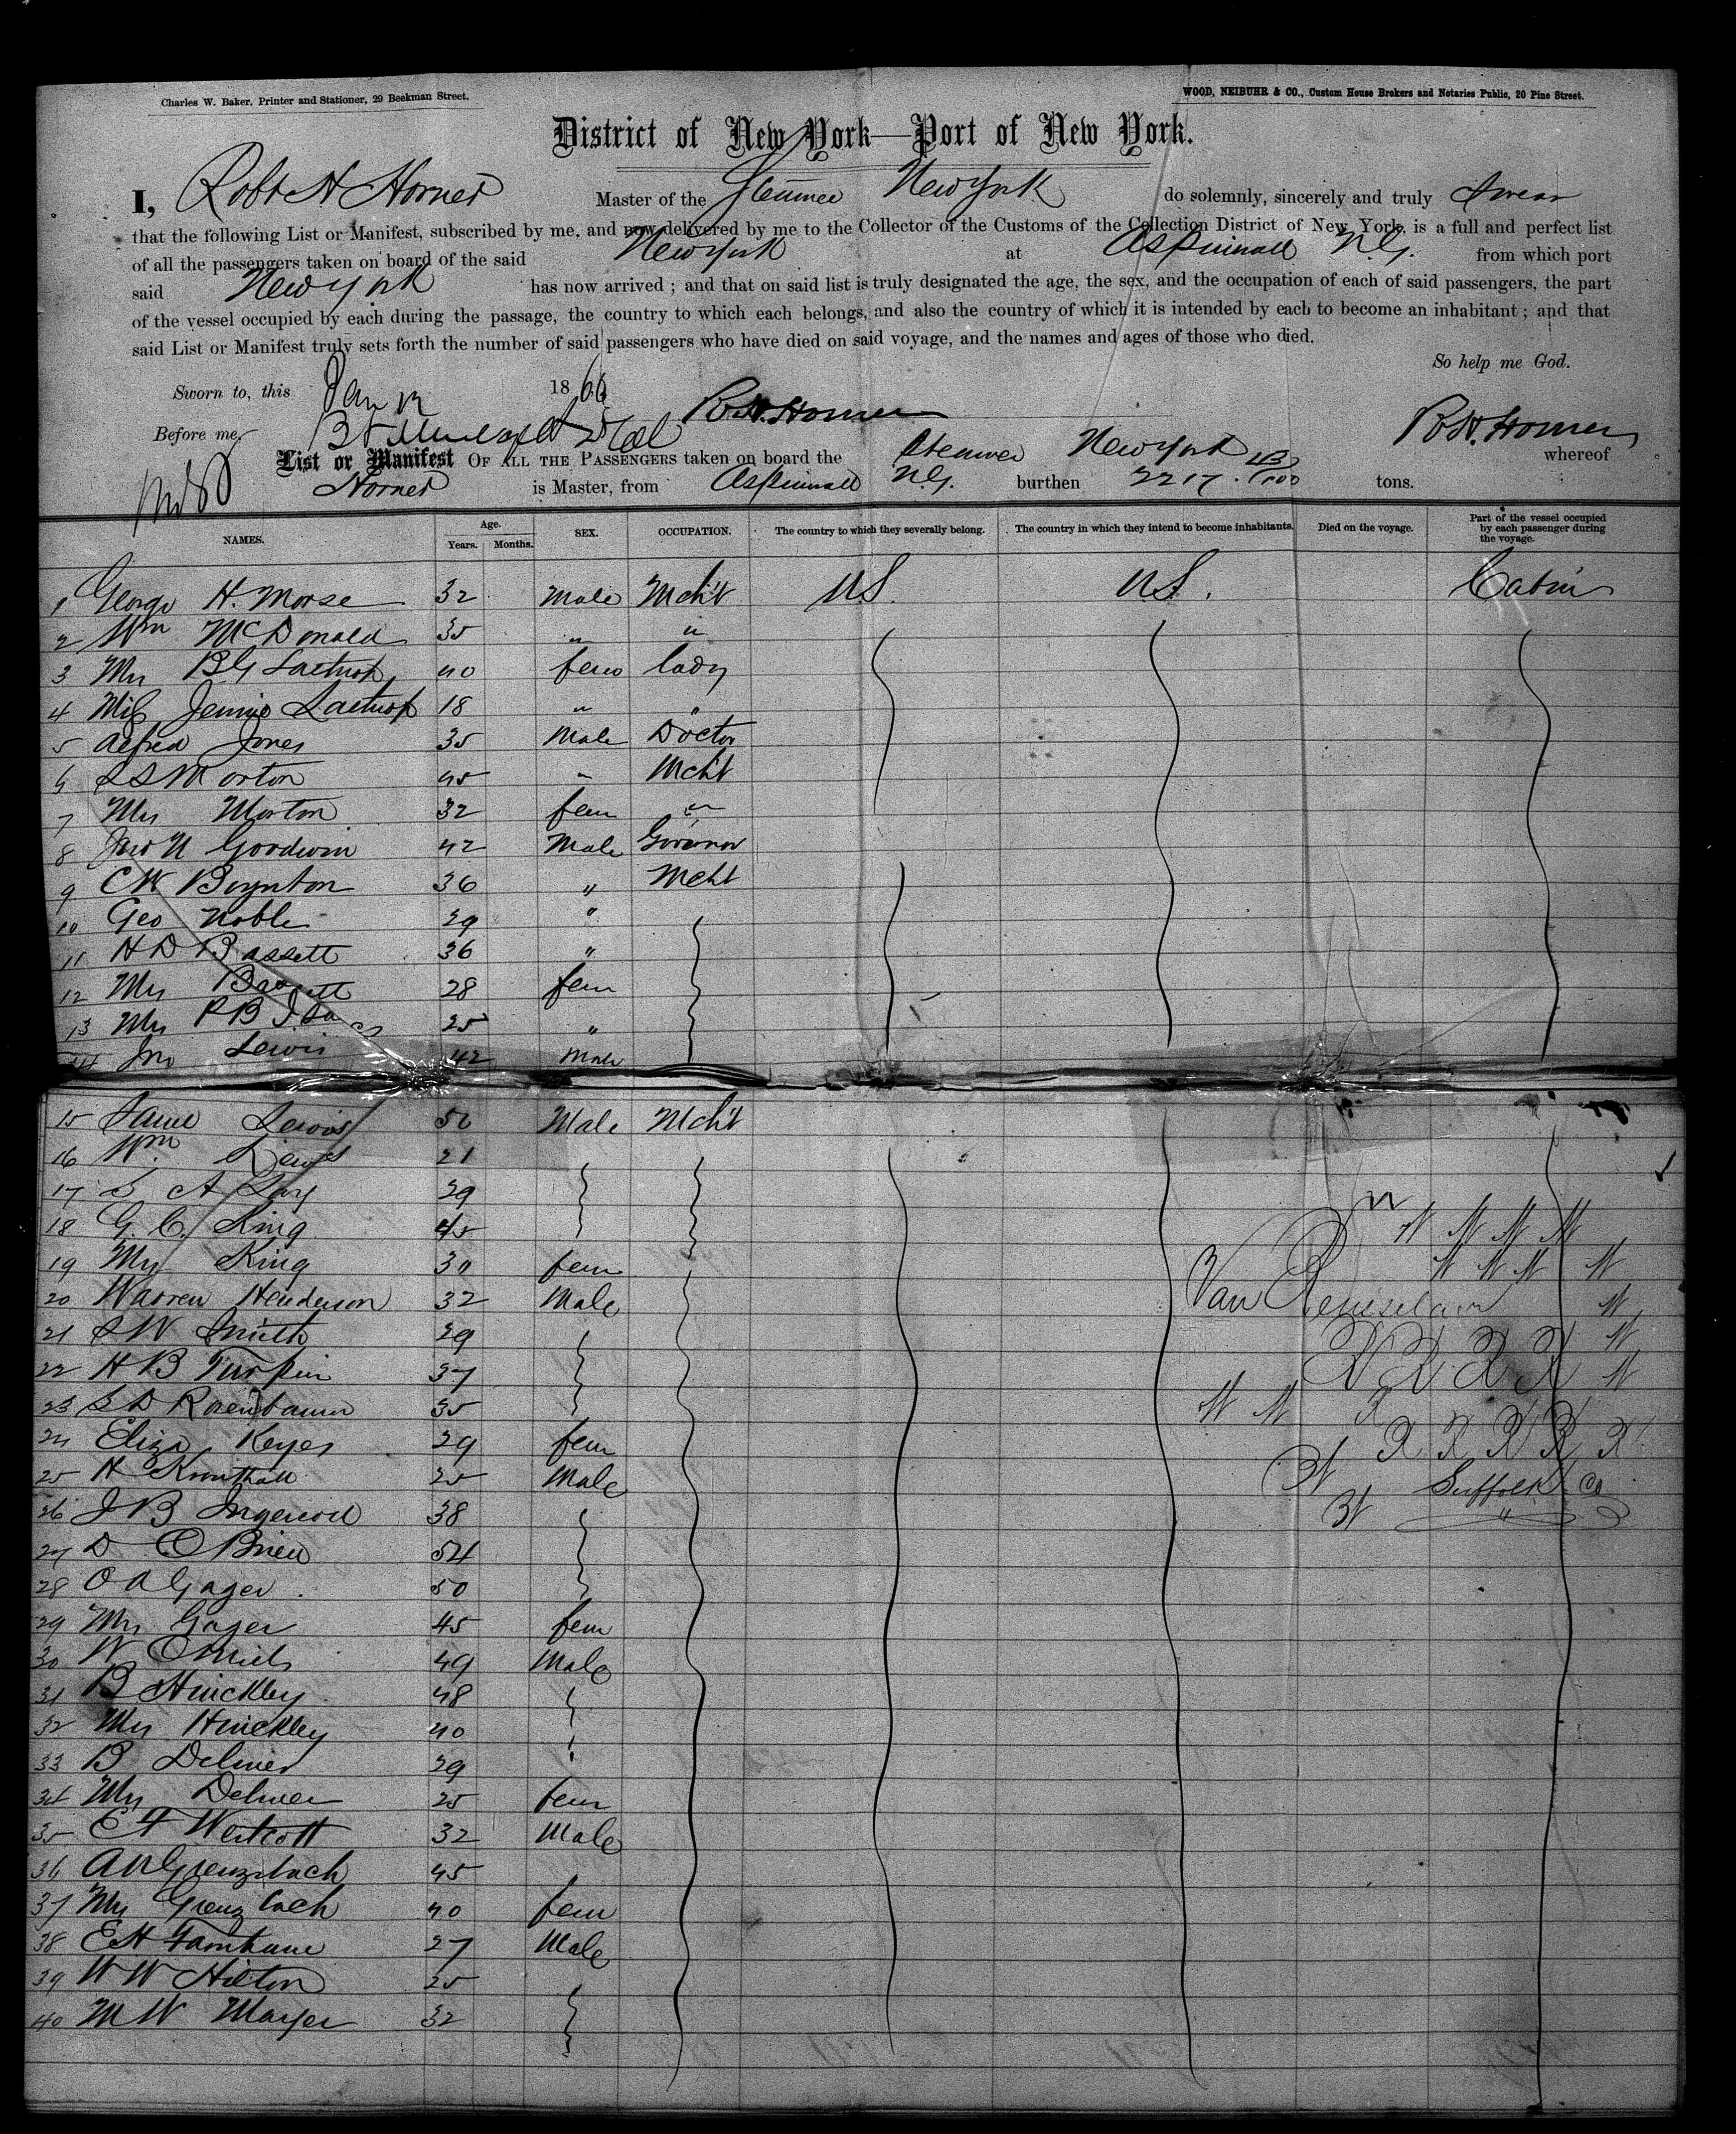 Charles W. Baker, Printer and Stationer, 29 Beekman Street.
WOOD, NEIBUHR & CO., Custom House Brokers and Notaries Public, 20 Pine Street.
District of New York—Port of New York.
I, Robt H Horner Master of the Steamer New York do solemnly, sincerely and truly Swear
that the following List or Manifest, subscribed by me, and now delivered by me to the Collector of the Customs of the Collection District of New York, is a full and perfect list
of all the passengers taken on board of the said New York at Aspinwall N.G. from which port
said New York has now arrived; and that on said list is truly designated the age, the sex, and the occupation of each of said passengers, the part
of the vessel occupied by each during the passage, the country to which each belongs, and also the country of which it is intended by each to become an inhabitant; and that
said List or Manifest truly sets forth the number of said passengers who have died on said voyage, and the names and ages of those who died.
So help me God.
Sworn to, this Jan 12 1866
R.H. Horner
Before me,
R.H. Horner
List or Manifest OF ALL THE PASSENGERS taken on board the Steamer New York whereof
Horner is Master, from Aspinwall N.G. burthen 2217 43/100 tons.
NAMES. Age. Years. Months. SEX. OCCUPATION. The country to which they severally belong. The country in which they intend to become inhabitants. Died on the voyage. Part of the vessel occupied by each passenger during the voyage.
1 George H. Morse 32 Male Mcht U.S. U.S. Cabin
2 Wm McDonald 35 " "
3 Mrs B G Lathrop 40 fem lady
4 Miss Jennie Lathrop 18 " "
5 Alfred Jones 35 Male Doctor
6 L S Morton 45 " Mcht
7 Mrs Morton 32 fem "
8 Jno N Goodwin 42 Male Governor
9 C W Boynton 36 " Mcht
10 Geo Noble 29 "
11 H D Bassett 36 "
12 Mrs Bassett 28 fem
13 Mrs R B Isaacs 25 "
14 Jno Lewis 42 Male
15 Lewis 50 Male Mcht
16 Wm Lewis 21
17 S A Lay 29
18 G. C. King 45
19 Mrs King 30 fem
20 Warren Henderson 32 Male
21 S W Smith 29
22 H B Turpin 37
23 S D Rosenbaum 35
24 Eliza Keyes 29 fem
25 H Kronthall 25 Male
26 J B 38
27 D O Brien 54
28 O A Gager 50
29 Mrs Gager 45 fem
30 W 49 Male
31 B Hinckley 48
32 Mrs Hinckley 40
33 B Delmer 29
34 Mrs Delmer 25 fem
35 E F Westcott 32 Male
36 A Grenzbach 45
37 Mrs Grenzbach 40 fem
38 E H Farnham 27 Male
39 W W Hilton 25
40 M W Mayer 32
Van Rensselaer
Suffolk Co